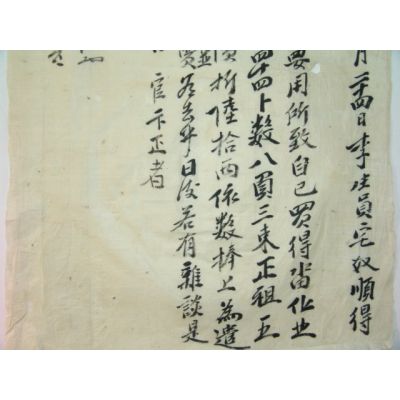 月二十四日李生員宅奴順得
要用所致自己買得畓
四十四卜數八負三束正租五
價折陸拾兩依數捧上爲遣
賣爲去乎日後若有雜談是
官卞正者